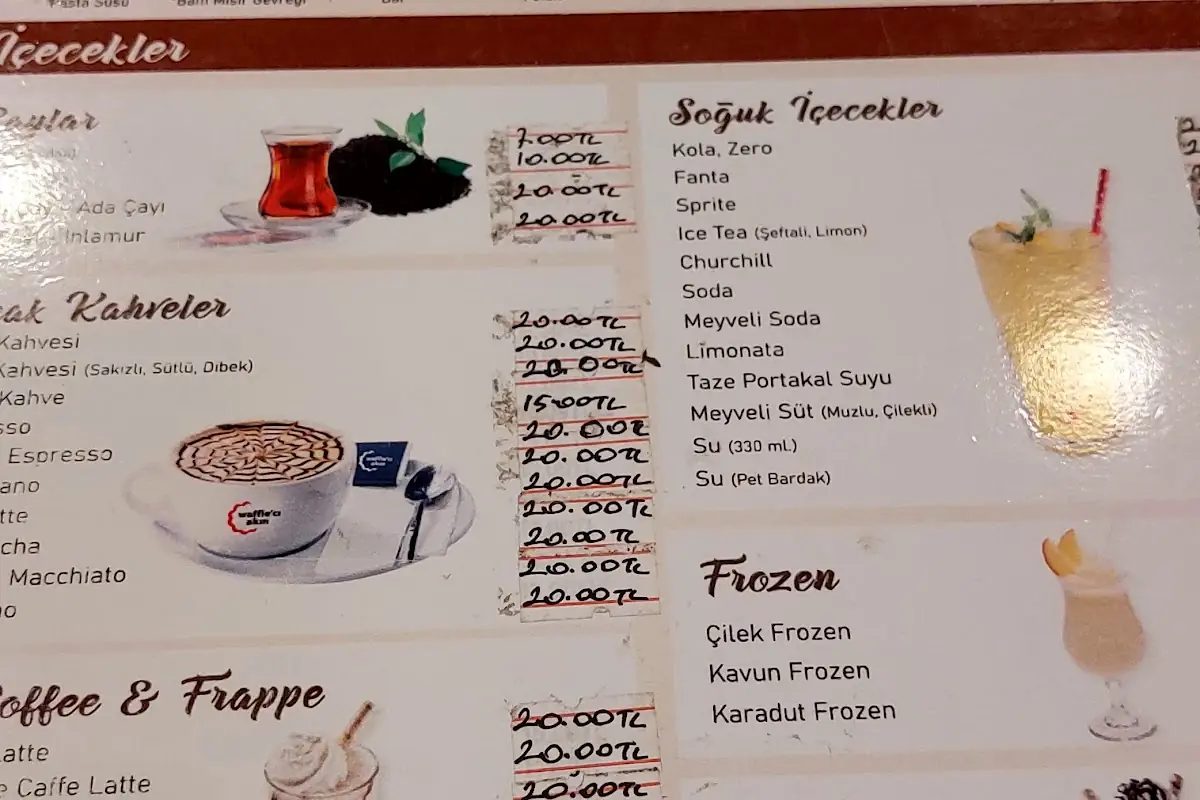 Pasta Süsü
Ballı Mısır Gevreği
Bar
İçecekler
Çaylar
7.00TL
10.00TL
Ada Çayı
20.00TL
Ihlamur
20.00TL
Kahveler
Kahvesi
20.00TL
Kahvesi (Sakızlı, Sütlü, Dibek)
20.00TL
Kahve
20.00TL
15.00TL
Espresso
20.00TL
20.00TL
20.00TL
20.00TL
20.00TL
Macchiato
20.00TL
20.00TL
waffle'cı
akın
waffle'cı
akın
Coffee & Frappe
Latte
20.00TL
Caffe Latte
20.00TL
20.00TL
Soğuk İçecekler
Kola, Zero
Fanta
Sprite
Ice Tea (Şeftali, Limon)
Churchill
Soda
Meyveli Soda
Limonata
Taze Portakal Suyu
Meyveli Süt (Muzlu, Çilekli)
Su (330 ml.)
Su (Pet Bardak)
Frozen
Çilek Frozen
Kavun Frozen
Karadut Frozen